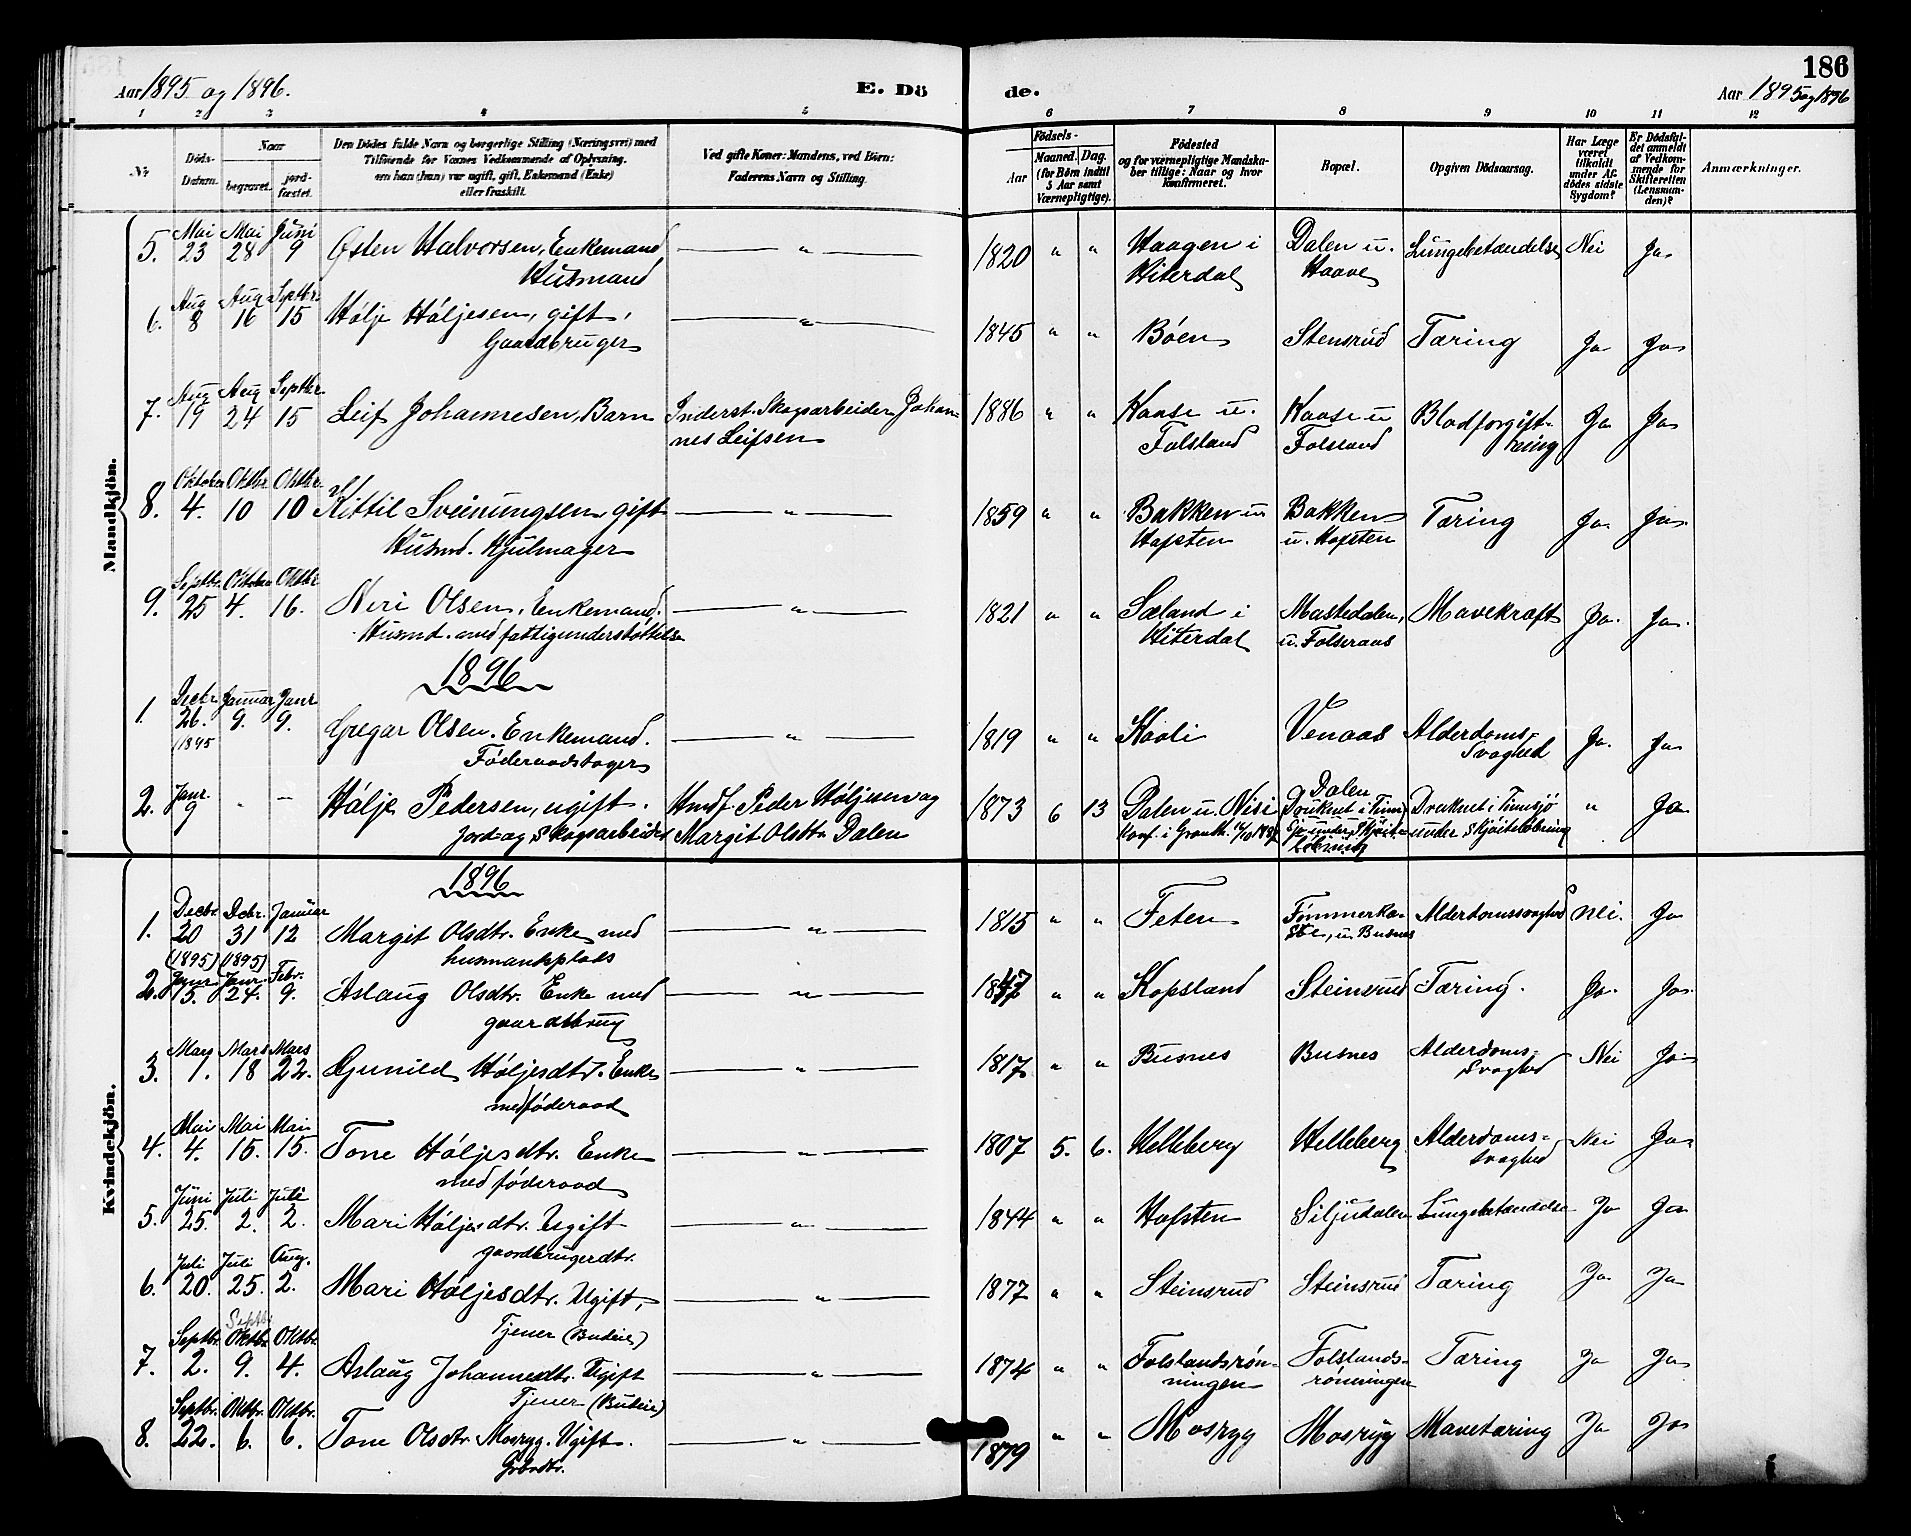 186
Aar 1895 og 1896.
E. Dö
de.
Aar 1895 og 1896
1 2 3 4 5 6 7 8 9 10 11 12
Nr.
Döds-
Datum.
Naar
begravet.
jord-
fæstet.
Den Dödes fulde Navn og borgerlige Stilling (Næringsvei) med
Tilföiende for Voxnes Vedkommende af Oplysning,
om han (hun) var ugift, gift, Enkemand (Enke)
eller fraskilt.
Ved gifte Koner: Mandens, ved Börn:
Faderens Navn og Stilling.
Födsels-
Aar
Maaned. Dag.
(for Börn indtil
5 Aar samt
Værnepligtige).
Födested
og for værnepligtige Mandska-
ber tillige: Naar og hvor
konfirmeret.
Bopæl.
Opgiven Dödsaarsag.
Har Læge
været
tilkaldt
under Af-
dödes sidste
Sygdom?
Er Dödsfal-
det anmeldt
af Vedkom-
mende for
Skifteretten
(Lensman-
den)?
Anmærkninger.
Mandkjön.
5. Mai 23 Mai 28 Juni 9 Østen Halvorsen, Enkemand Husmand — " — 1820 " " Haagen i Hiterdal Dalen u. Haave Lungebetændelse Nei Ja
6. Aug 8 Aug 16 Septbr. 15 Hølje Høljesen, gift, Gaardbruger — " — 1845 " " Bøen Stensrud Tæring Ja Ja
7. Aug 19 Aug 24 Septbr. 15 Leif Johannesen, Barn Inderst. Skogsarbeider Johannes Leifsen 1886 " " Kaase u. Folsland Kaase u Folsland Blodforgiftning Ja Ja
8. Oktober 4. Oktbr. 10 Oktbr. 10 Kittil Sveinungsen, gift Husmd. Hjulmager — " — 1859 " " Bakken u. Hofsten Bakken u. Hofsten Tæring Ja Ja
9. Septbr. 25 Oktober 4. Oktbr 16. Neri Olsen, Enkemand. Husmd. med fattigunderstøttelse — " — 1821 " " Sæland i Hiterdal Mastedalen, u. Folseraas Mavekræft Ja. Ja.
1896
1. Decbr. 26. 1895 Januar 9. Janr. 9. Gregar Olsen. Enkemand. Føderaadstager — " — 1819 " " Haali Venaas Alderdoms-Svaghed Ja. Ja
2. Janr. 9 " — Hølje Pedersen, ugift. Jord og Skogsarbeider Hmdf. Peder Høljesen og Margit Olsdtr Dalen 1873 6 13 Dalen u. Nisi Konf. i Dalen Druknet i Tinnsjø under Skjøiteløbning " Ja
Kvindekjön.
1896
1. Decbr. 20 (1895) Decbr. 31 (1895) Januar 12 Margit Olsdtr. Enke med husmandsplads — " — 1815 " " Feten Tømmerkaase, u Busnes Alderdomssvaghed Nei. Ja
2. Janr. 15. Janr. 24. Febr. 9. Aslaug Olsdtr. Enke med gaardbrug — " — 1847 " " Kopsland Steinsrud Tæring. Ja. Ja.
3. Mars 1. Mars 18 Mars 22. Gunild Høljesdtr. Enke med føderaad — " — 1817 " " Busnes Busnes Alderdoms-Svaghed Nei Ja
4. Mai 4. Mai 15. Mai 15. Tone Høljesdtr. Enke med føderaad — " — 1807 5. 6. Helleberg Helleberg. Alderdoms-svaghed Nei Ja
5. Juni 25. Juli 2. Juli 2. Mari Høljesdtr. Ugift gaardbrugerdtr. — " — 1844 " " Hofsten Siljudalen Lungebetændelse Ja Ja
6. Juli 20 Juli 25. Aug. 2. Mari Høljesdtr. Ugift, Tjener (Budeie) — " — 1877 " " Steinsrud Steinsrud Tæring Ja Ja
7. Septbr. 2. Septbr Oktbr 9. Oktbr. 4. Aslaug Johannesdtr. Ugift Tjener (Budeie) — " — 1874 " " Folslandsrønningen Folslandsrønningen Tæring Ja Ja
8. Septbr. 22. Oktbr. 6. Oktbr. 6. Tone Olsdtr. Mosryg. Ugift. Gbrdtr. — " — 1879 " " Mosryg Mosryg Mavetæring Ja Ja